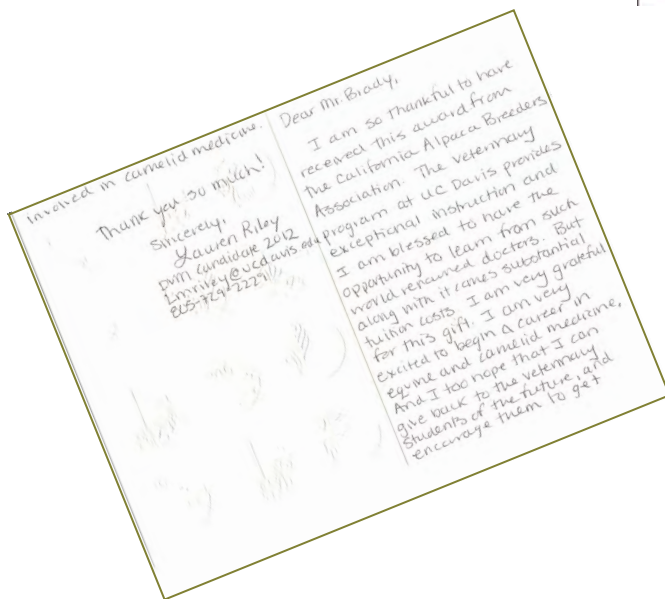 Dear Mr. Brady,
I am so thankful to have
received this award from
the California Alpaca Breeders
Association. The veterinary
program at UC Davis provides
exceptional instruction and
I am blessed to have the
opportunity to learn from such
world renowned doctors. But
along with it comes substantial
tuition costs. I am very grateful
for this gift. I am very
excited to begin a career in
equine and camelid medicine.
And I too hope that I can
give back to the veterinary
students of the future, and
encourage them to get
involved in camelid medicine.
Thank you so much!
Sincerely,
Lauren Riley
DVM candidate 2012
lmriley@ucdavis.edu